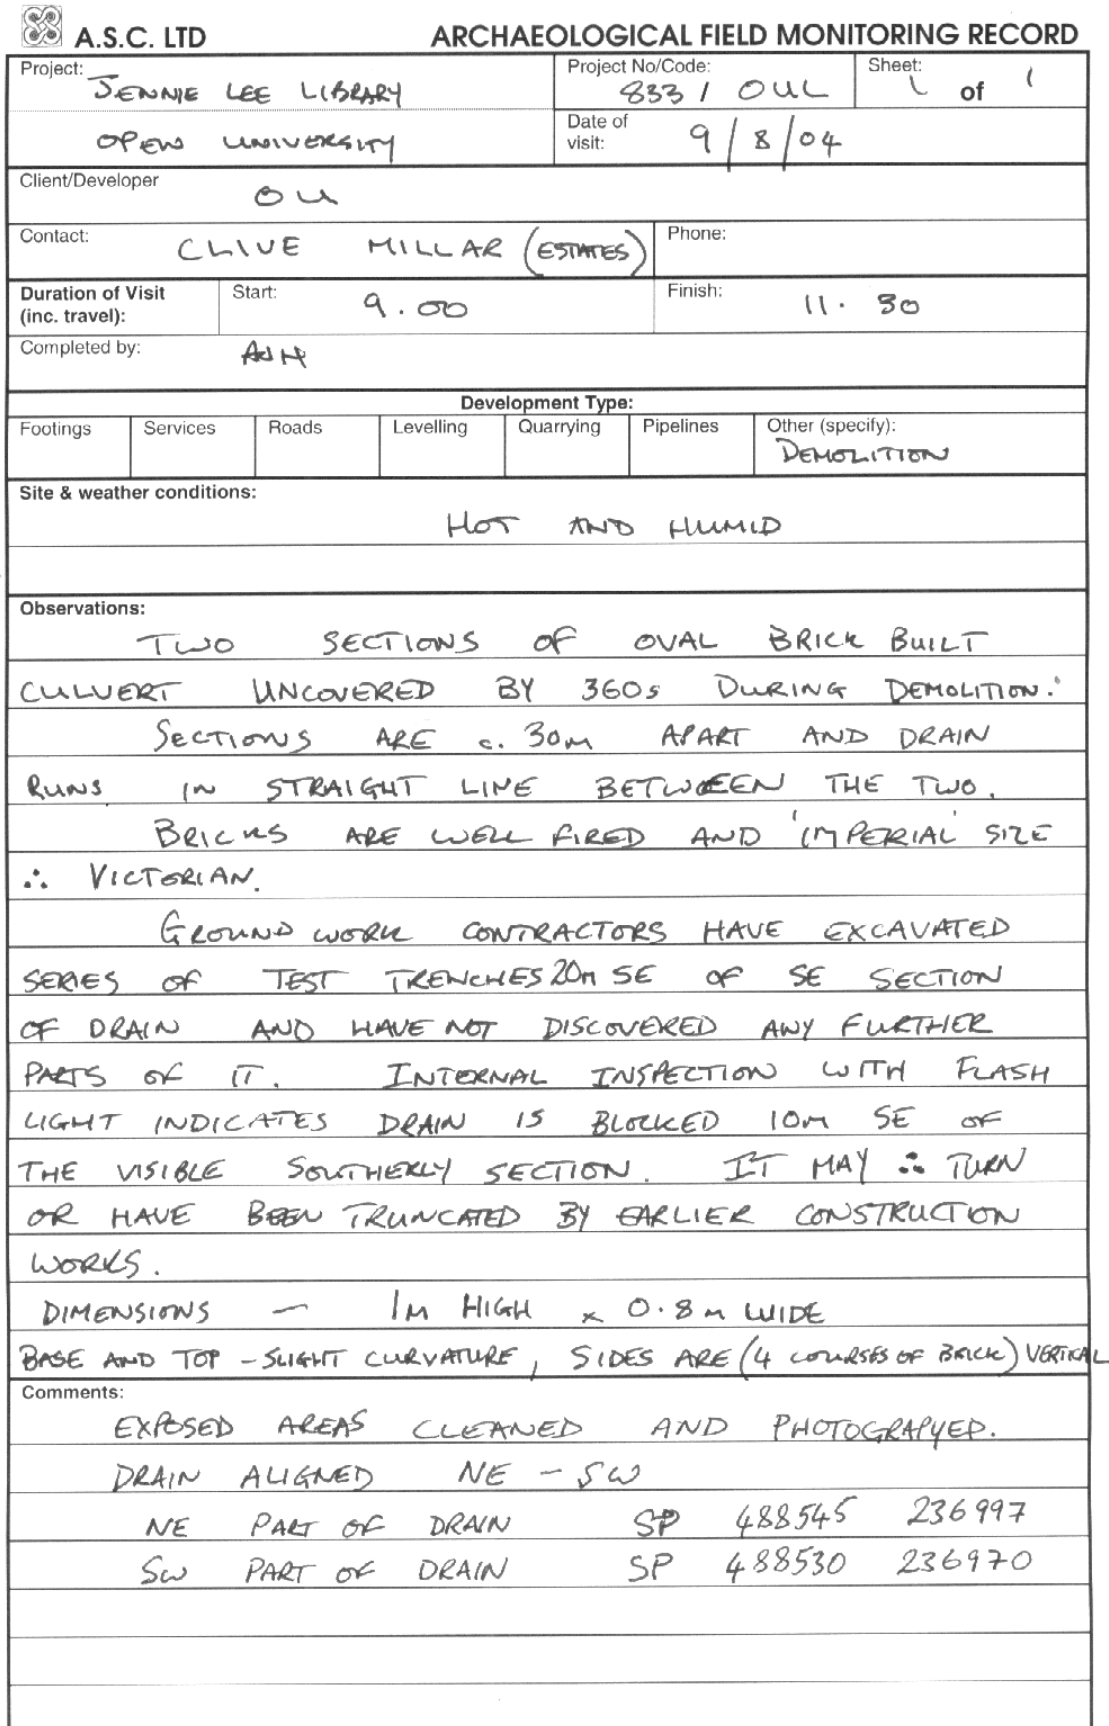 A.S.C. LTD ARCHAEOLOGICAL FIELD MONITORING RECORD
Project: JENNIE LEE LIBRARY
OPEN UNIVERSITY
Project No/Code: 833 / OUL
Sheet: 1 of 1
Date of visit: 9/8/04
Client/Developer OU
Contact: CLIVE MILLAR (ESTATES)
Phone:
Duration of Visit (inc. travel):
Start: 9.00
Finish: 11.30
Completed by: AJH
Development Type:
Footings Services Roads Levelling Quarrying Pipelines Other (specify):
DEMOLITION
Site & weather conditions:
HOT AND HUMID
Observations:
TWO SECTIONS OF OVAL BRICK BUILT
CULVERT UNCOVERED BY 360s DURING DEMOLITION.
SECTIONS ARE c. 30m APART AND DRAIN
RUNS IN STRAIGHT LINE BETWEEN THE TWO.
BRICKS ARE WELL FIRED AND 'IMPERIAL' SIZE
∴ VICTORIAN.
GROUND WORK CONTRACTORS HAVE EXCAVATED
SERIES OF TEST TRENCHES 20m SE OF SE SECTION
OF DRAIN AND HAVE NOT DISCOVERED ANY FURTHER
PARTS OF IT. INTERNAL INSPECTION WITH FLASH
LIGHT INDICATES DRAIN IS BLOCKED 10m SE OF
THE VISIBLE SOUTHERLY SECTION. IT MAY ∴ TURN
OR HAVE BEEN TRUNCATED BY EARLIER CONSTRUCTION
WORKS.
DIMENSIONS — 1m HIGH x 0.8m WIDE
BASE AND TOP - SLIGHT CURVATURE, SIDES ARE (4 COURSES OF BRICK) VERTICAL
Comments:
EXPOSED AREAS CLEANED AND PHOTOGRAPHED.
DRAIN ALIGNED NE - SW
NE PART OF DRAIN SP 488545 236997
SW PART OF DRAIN SP 488530 236970